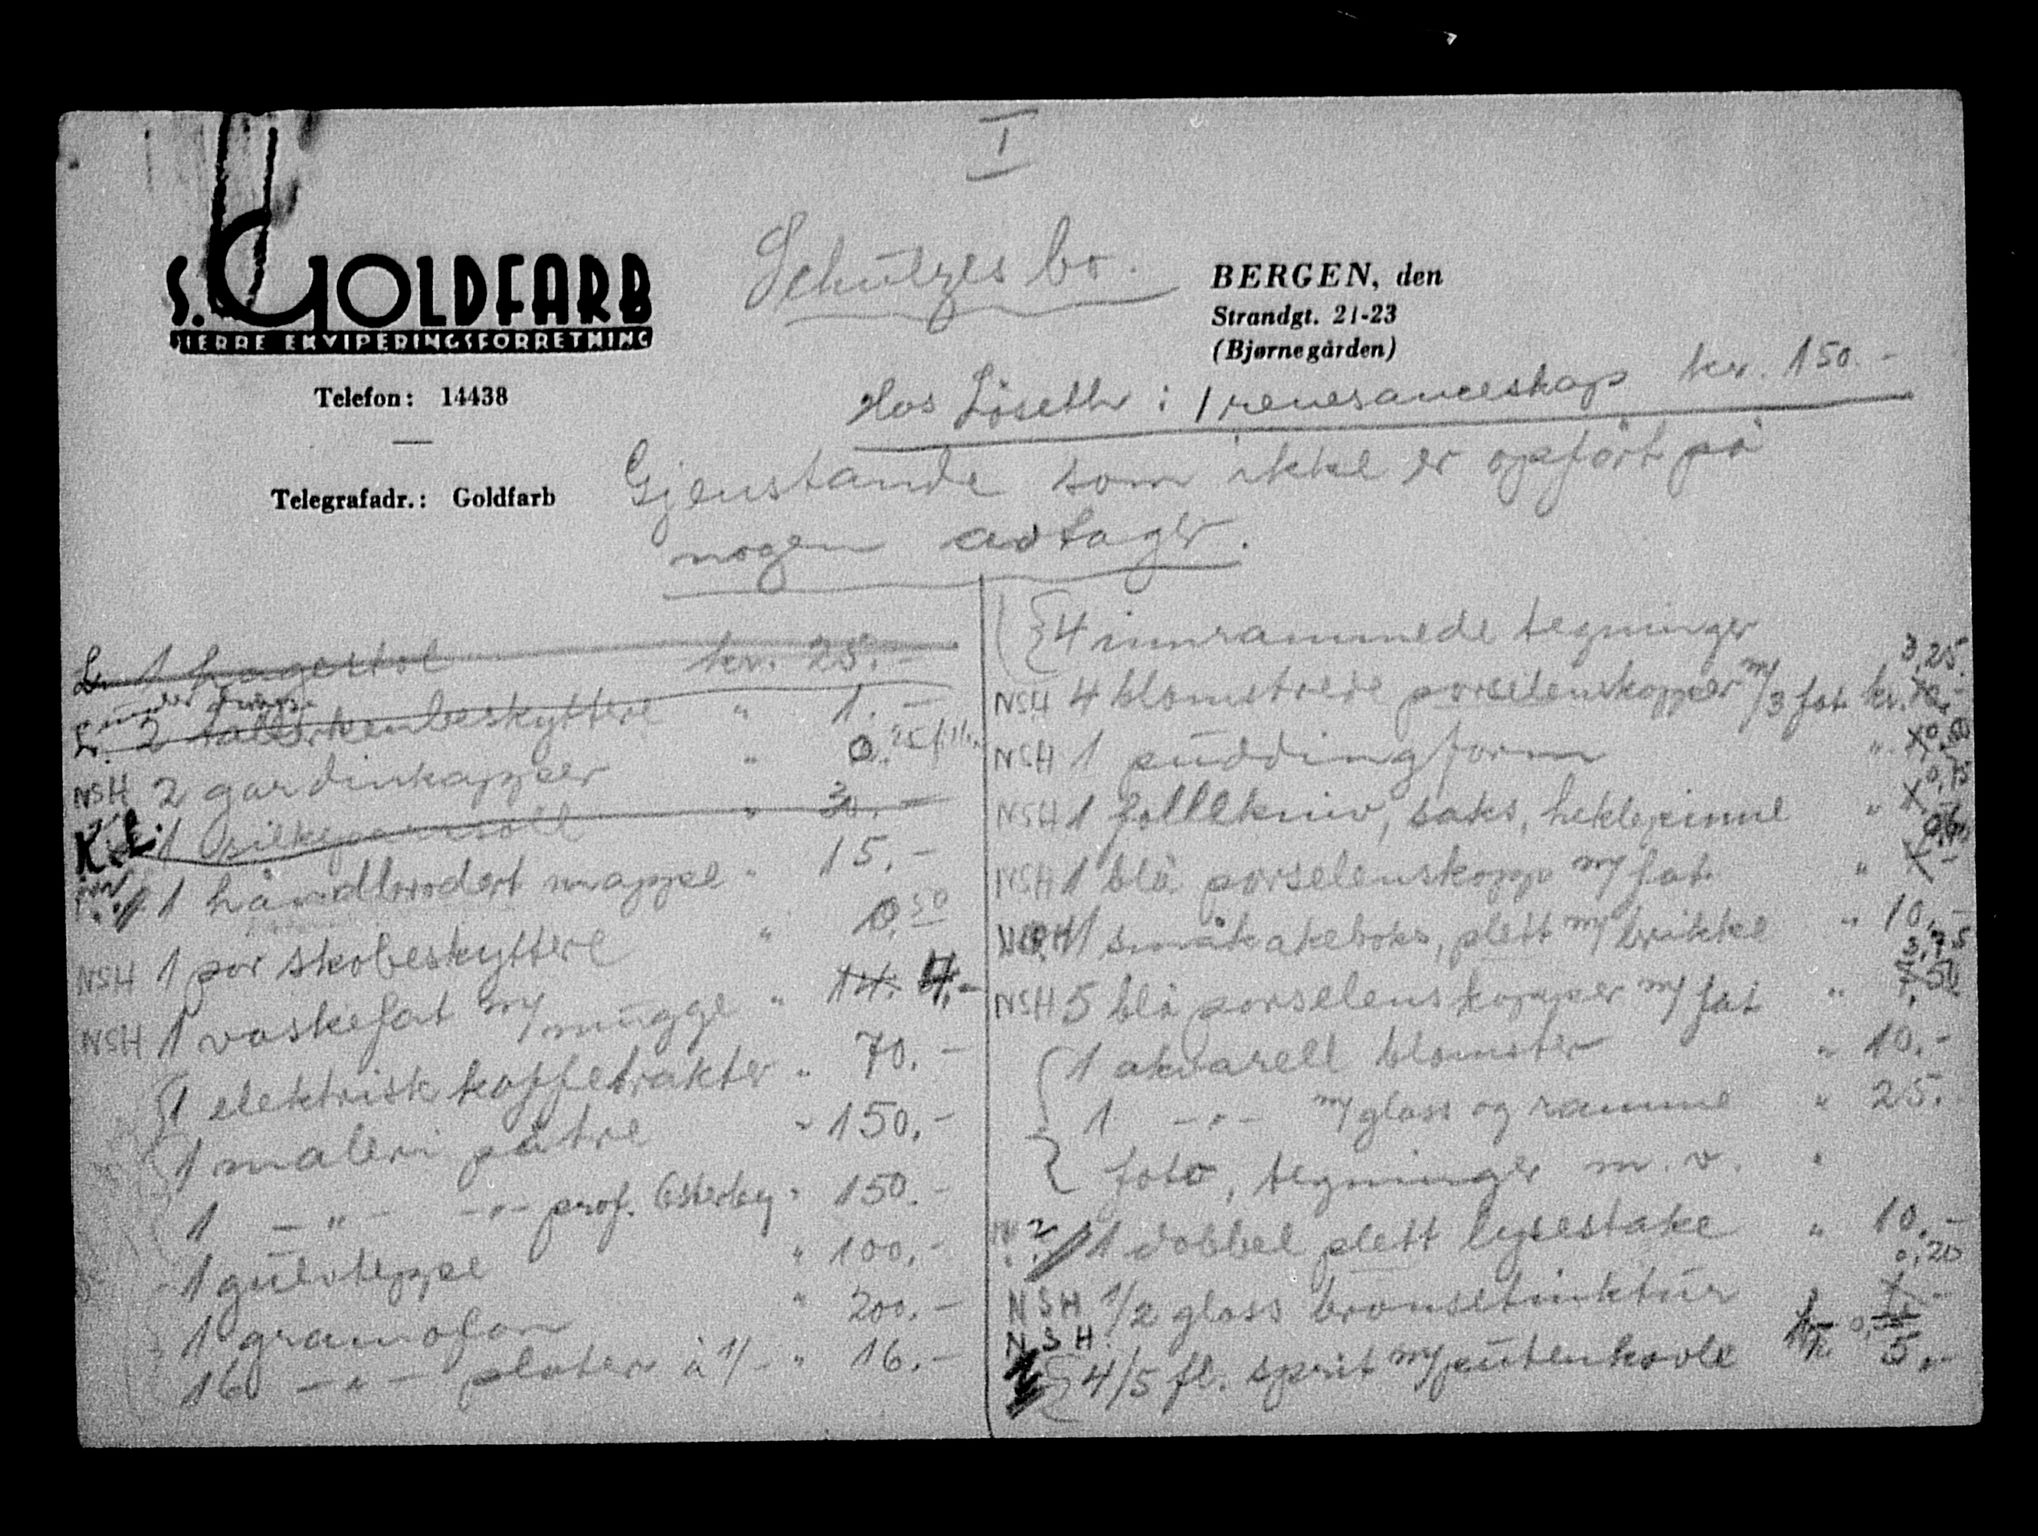 I
S. GOLDFARB
HERRE EKVIPERINGSFORRETNING
Telefon: 14438
Telegrafadr.: Goldfarb
Schützes bo.
BERGEN, den
Strandgt. 21-23
(Bjørnegården)
Hos Löseth: 1 renesanceskap kr. 150.-
Gjenstande som ikke er opført på
nogen avtager.
L. 1 hagestol kr. 25.-
under
L. 2 tallerkenbeskyttere " 1.-
NSH 2 gardinkapper " 0.25
K.L. 1 silkeparasoll " 30.-
1 håndbrodert mappe " 15.-
NSH 1 par skobeskyttere " 0.50
NSH 1 vaskefat m/mugge " 14. 4.-
1 elektrisk koffetrakter " 70.-
1 maleri på tre " 150.-
1 -"- -"- prof. Österby " 150.-
1 gulvteppe " 100.-
1 gramofon " 200.-
16 -"- plater à 1/- " 16.-
4 innrammede tegninger
3,25
NSH 4 blomstrede porselenskopper m/3 fat kr.
NSH 1 puddingform " 0,50
NSH 1 follekniv, saks, heklepinne " 0,75
NSH 1 blå porselenskopp m/fat "
1 småkakeboks, plett m/brikke " 10.-
3,75
NSH 5 blå porselenskopper m/fat " 7.50
1 akvarell blomster " 10.-
1 -"- m/glass og ramme " 25.-
foto, tegninger m.v. "
1 dobbel plett lysestake " 10.-
0,20
NSH 1/2 glass bronsetinktur "
NSH.
4/5 fl. sprit m/putenkovle 5.-